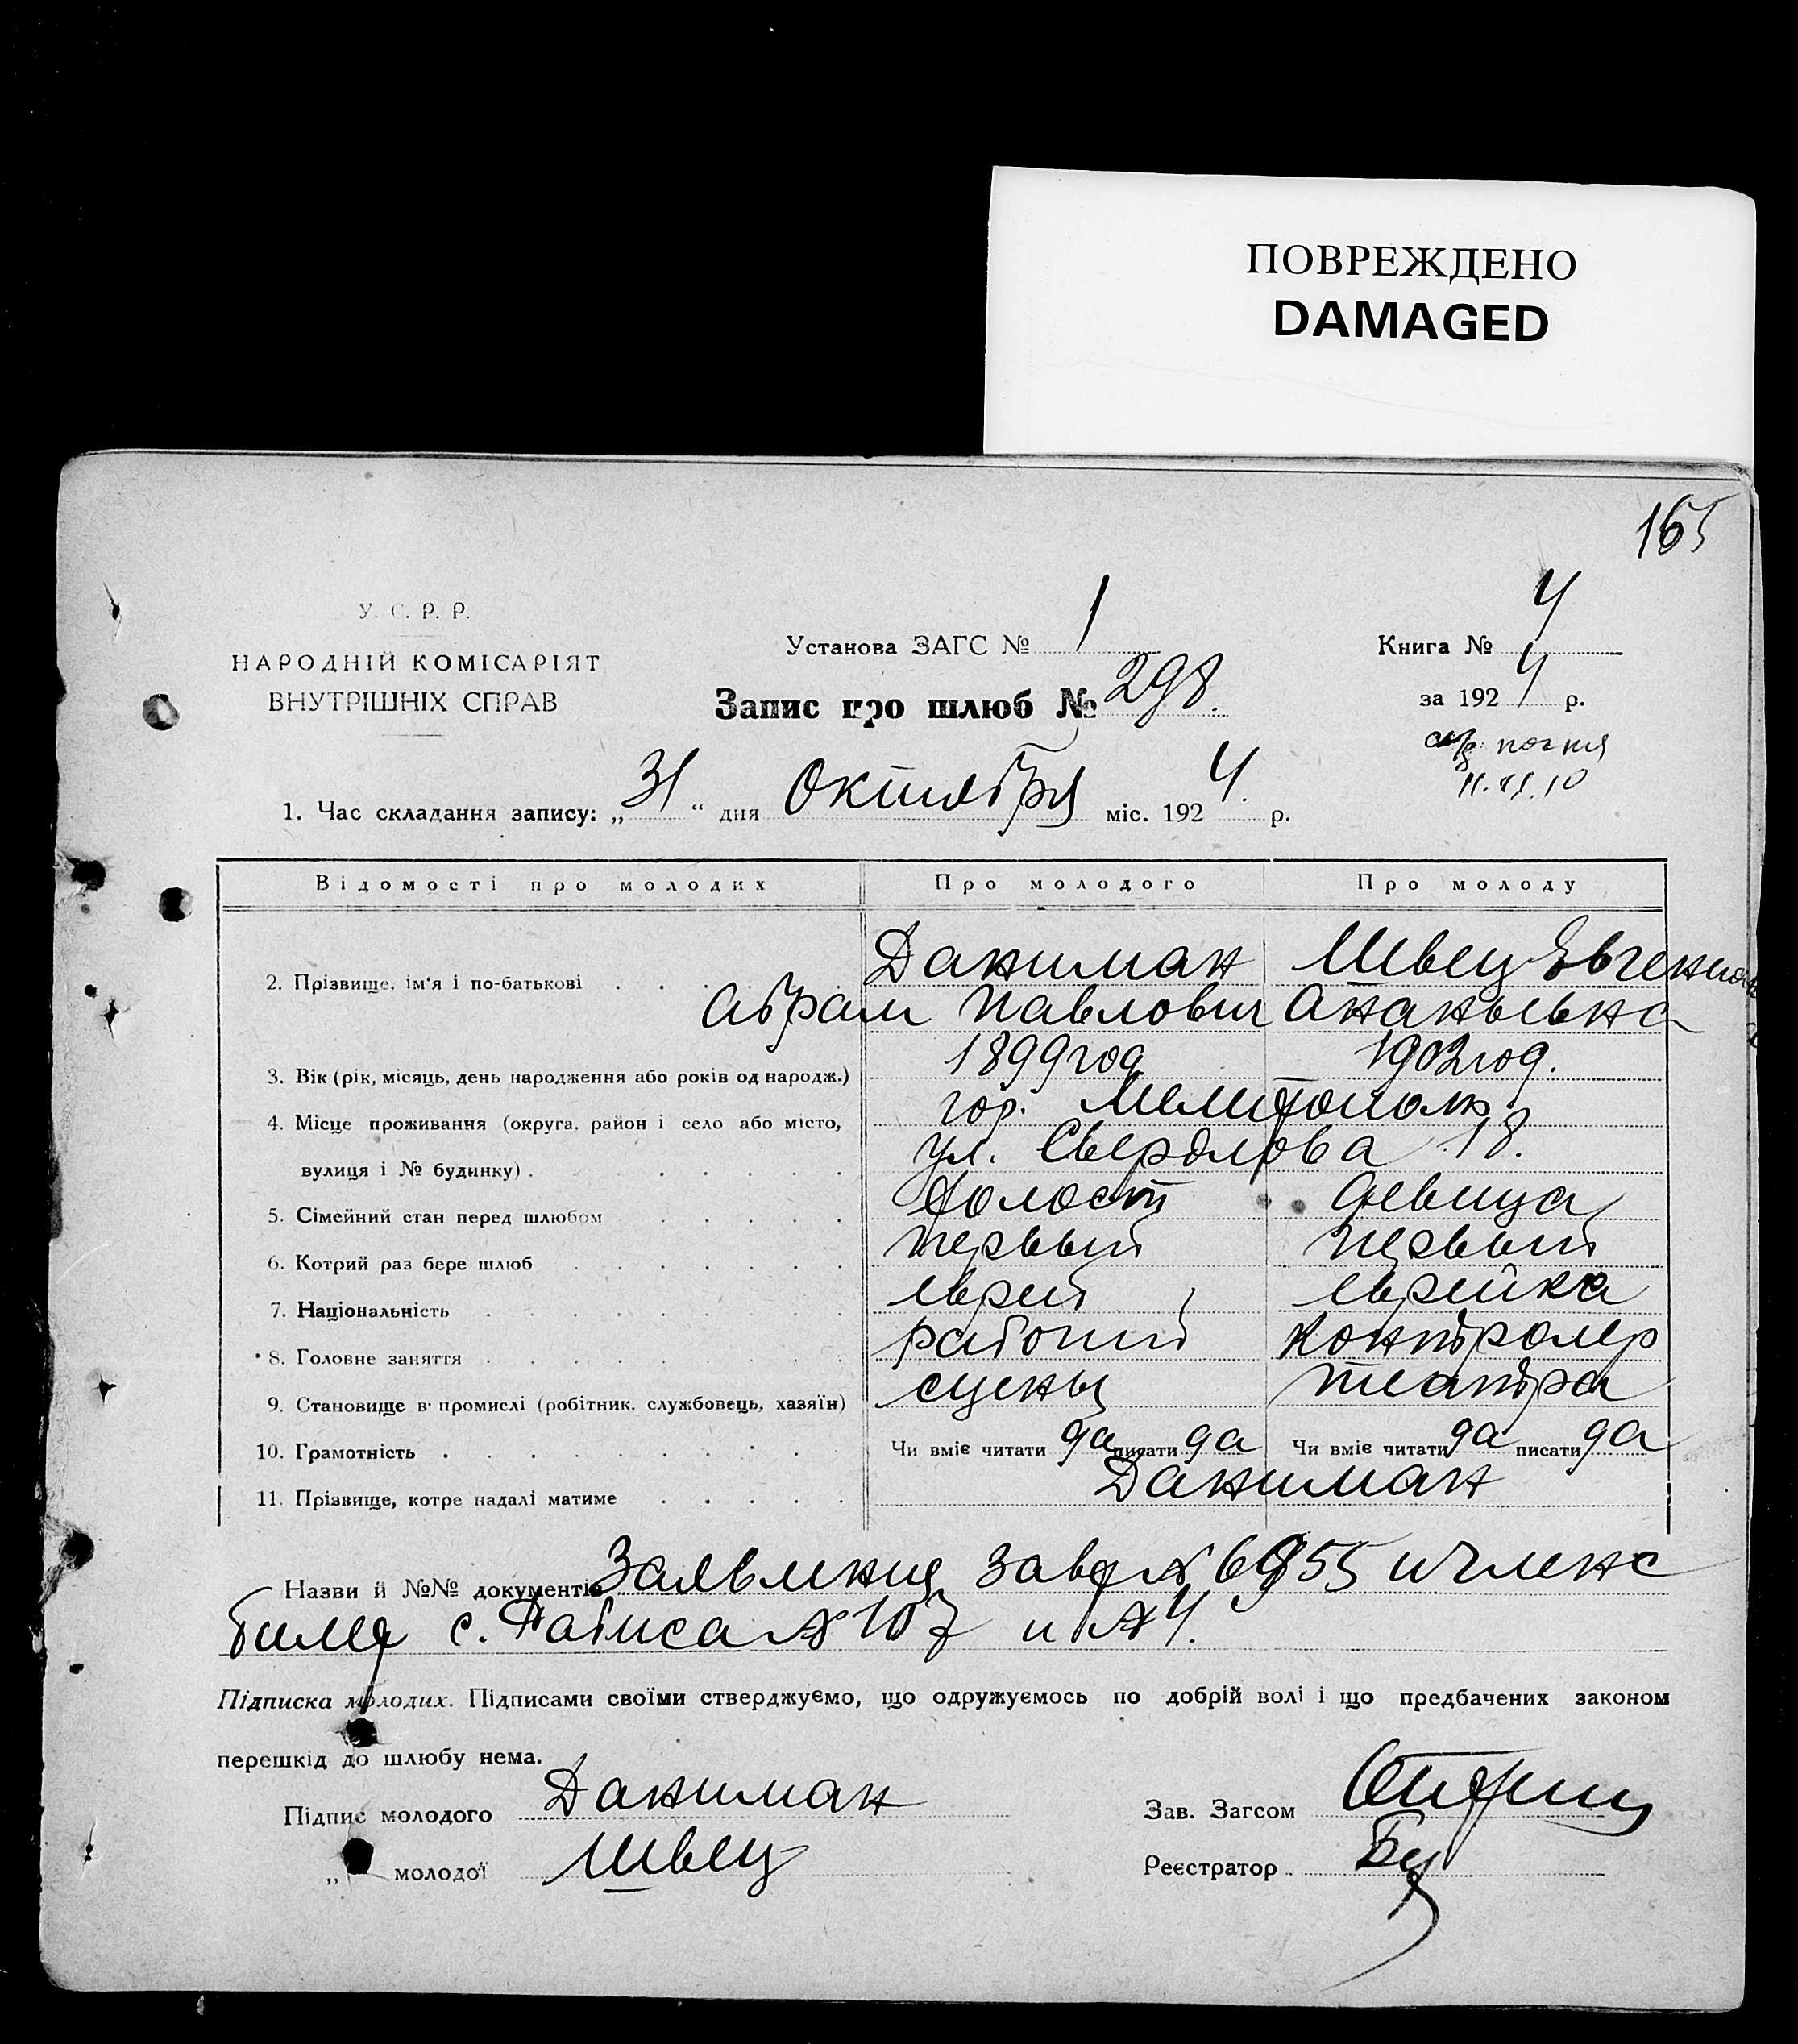 ПОВРЕЖДЕНО
DAMAGED
165
У. С. Р. Р.
НАРОДНІЙ КОМІСАРІЯТ
ВНУТРІШНІХ СПРАВ
Установа ЗАГС № 1
Запис про шлюб № 298.
Книга № 4
за 1924 р.
11.
1. Час складання запису: „31“ дня Октября міс. 1924. р.
Відомості про молодих Про молодого Про молоду
2. Прізвище, ім'я і по-батькові . . . . Даниман Швец Евгения
Абрам Павлович Ананьевна
3. Вік (рік, місяць, день народження або років од народж.) 1899 год 1902 год.
4. Місце проживання (округа, район і село або місто, гор. Мелитополь
вулиця і № будинку) . . . . . . ул. Свердлова 18.
5. Сімейний стан перед шлюбом . . . . . Холост девица
6. Котрий раз бере шлюб . . . . . . первый первый
7. Національність . . . . . . . еврей еврейка
8. Головне заняття . . . . . . . рабочий контролер
9. Становище в промислі (робітник, службовець, хазяїн) сцены театра
10. Грамотність . . . . . . . . Чи вміє читати да писати да Чи вміє читати да писати да
11. Прізвище, котре надалі матиме . . . . . Даниман
Назви й №№ документів Заявления № 6955 и членс
билед с. Рабиса № 107 и № 4.
Підписка молодих. Підписами своїми стверджуємо, що одружуємось по добрій волі і що предбачених законом
перешкід до шлюбу нема.
Підпис молодого Даниман
Зав. Загсом
„ молодої Швец
Реєстратор